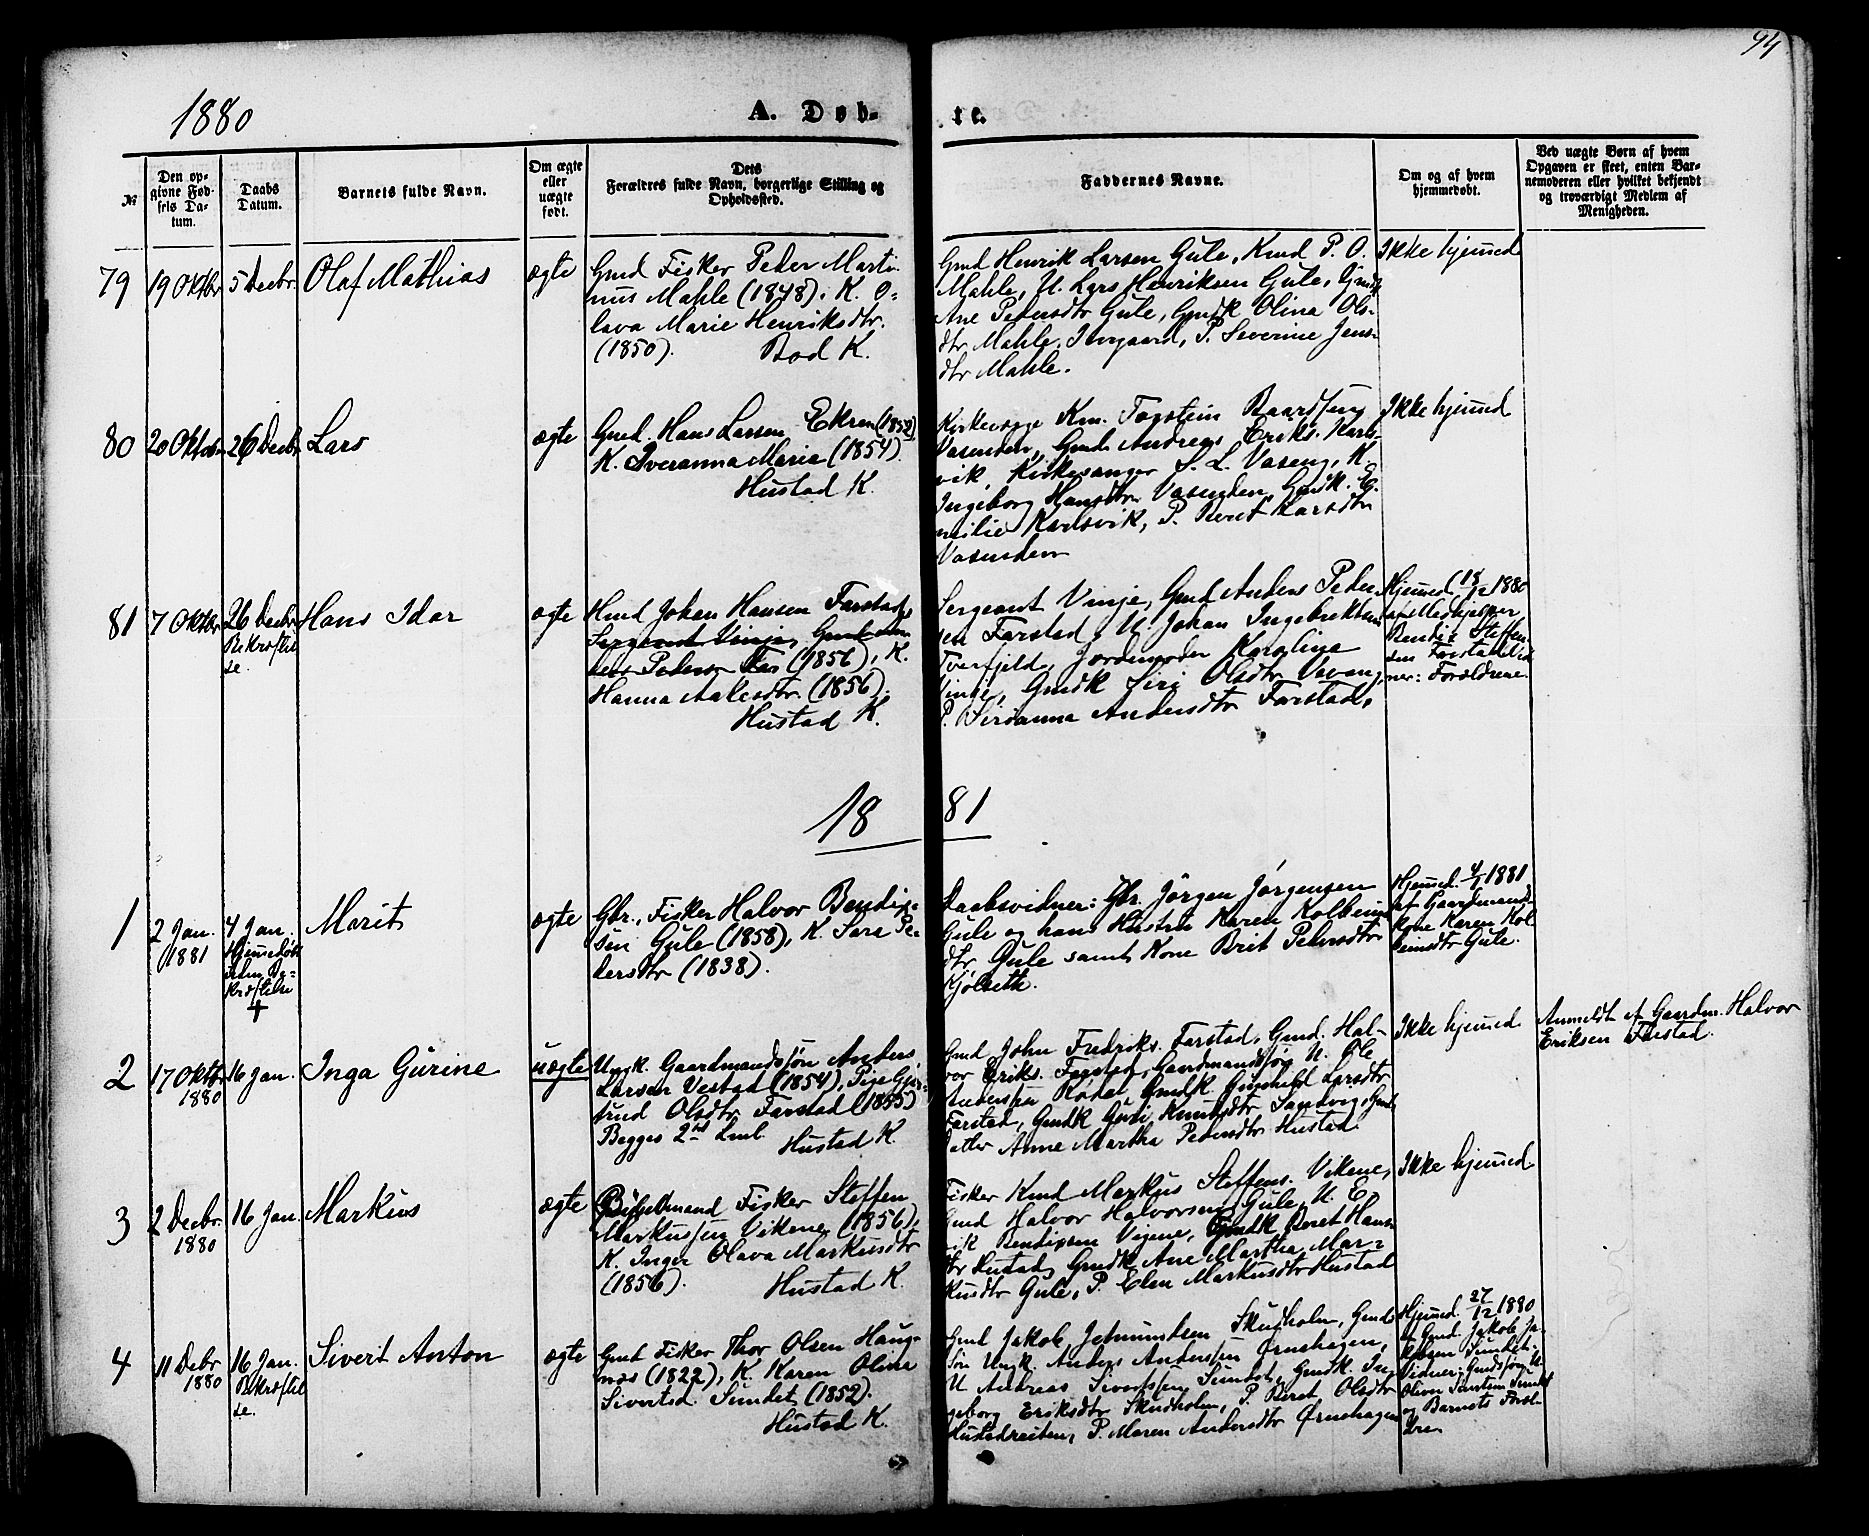 94
1880
A. Døb-
te.
№
Den opgivne Fødsels Datum.
Daabs Datum.
Barnets fulde Navn.
Om ægte eller uægte født.
Dets Forældres fulde Navn, borgerlige Stilling og Opholdssted.
Faddernes Navne.
Om og af hvem hjemmedøbt.
Ved uægte Børn af hvem Opgaven er skeet, enten Barnemoderen eller hvilket bekjendt og troværdigt Medlem af Menigheden.
79
19 Oktbr
5 Decbr.
Olaf Mathias
ægte
Gmd Fisker Peder Marti-
nus Mahle (1848), K. O-
lava Marie Henriksdtr.
(1850). Bod K.
Gmd Henrik Larsen Gule, Kmd P. O.
Mahle, U. Lars Henriksen Gule, Gmdk
Ane Pedersdtr Gule, Gmdk Olina Ols-
dtr Mahle, P. Severine Jens-
dtr Mahle.
Ikke hjemmed
80
20 Oktbr
26 Decbr
Lars
ægte
Gmd. Hans Larsen Ekren (1858)
K. Iveranna Maria (1854).
Hustad K.
Kirkeværge Km. Torstein Baardsen
Vasenden, Gmd Andreas Eriks. Karls-
vik, Kirkesanger S. L. Vaseng, K.
Ingeborg Hansdtr Vasenden, Gmdk. E-
milie Karlsvik, P. Beret Larsdtr
Vasenden
Ikke hjemmed
81
7 Oktbr
26 Decbr
Bekræftel
se.
Hans Idar
ægte
Hmd Johan Hansen Farstad,
Sergeant Vinje, Gmd An-
ders Peders. Far (1856), K.
Hanna Aslesdtr. (1856).
Hustad K.
Sergeant Vinje, Gmd Anders Peder-
sen Farstad, U. Johan Ingebriktsen
Tverfjeld, Jordmoder Karoline
Vinje, Gmdk Siri Olsdtr Vevang,
P. Serianna Andersdtr Farstad.
Hjemmed (18/12 1880
af Medhjelper
Bendix Steffen-
sen Farstad Vid-
ner: Forældrene.
18 81
1
2 Jan.
1881
4 Jan.
Hjemmedøbt
uden Be-
kræftelse
+
Marit
ægte
Gbr., Fisker Halvor Bendix-
sen Gule (1858), K. Sara Pe-
dersdtr (1838).
Daabsvidner: Gbr. Jörgen Jørgensen
Gule og hans Hustru Karen Kolbeins-
dtr Gule samt Kone Brit Pedersdtr
Kjølseth.
Hjemmed. 4/1 1881
af Gaardmand-
kone Karen Kol
beinsdtr Gule.
2
17 Oktbr
1880
16 Jan.
Inga Gurine
uægte
Ungk. Gaardmandssøn Anders
Larsen Vestad (1854), Pige Gjer-
trud Olsdtr Farstad (1855)
Begges 2det Leml. Hustad K
Gmd John Fredriks. Farstad, Gmd. Hal-
vor Eriks. Farstad, Gaardmandssøn U. Ole
Anderssen Rødal, Gmdk Gunhild Larsdtr
Farstad, Gmdk Guri Knutsdtr Sandvig, Gmds
datter Anne Martha Pedersdtr Hustad.
Ikke hjemmed
Anmeldt af Gaardm. Halvor
Eriksen Farstad.
3
2 Decbr.
1880
16 Jan.
Markus
ægte
Bygselmand Fisker Steffen
Markussen Vikene (1856),
K. Inger Olava Markusdtr
(1856). Hustad K.
Fisker Kmd Markus Steffens. Vikene,
Gmd Halvor Halvorsen Gule, U. E-
rik Bendixsen Vigene, Gmdk Beret Hans-
dtr Hustad, Gmdk Ane Martha Mar-
kusdtr Gule, P. Elen Markusdtr Hustad
Ikke hjemmed
4
11 Debr
1880
16 Jan.
Bekræftel
se.
Sivert Anton
ægte
Gmd Fisker Thor Olsen Haug-
næs (1822), K. Karen Olina
Sivertsd. Sundet (1852).
Hustad K.
Gmd Jakob Jetmundsen Skudholm, Gmds
søn Ungk. Anders Anderssen Ørnehagen,
U Andreas Sivertssen Sundet, Gmdk In-
geborg Eriksdtr Skudholm, P. Beret Olsdtr
Hustadreiten, P. Maren Andersdtr Ørnehagen
Hjemmed. 27/12 1880
af Gmd. Jakob Ja-
kobsen Sundet.
Vidner: Gmdssøn U
Oliver Sundet
og Barnets Foræl-
dre